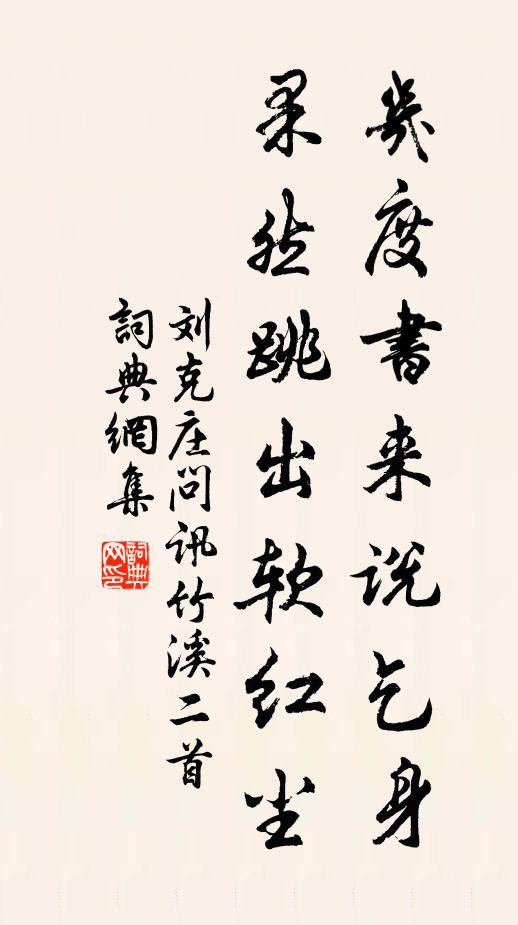 幾度書来说乞身
果然跳出软红尘
刘克庄问讯竹溪二首
詞典網集
詞典网印